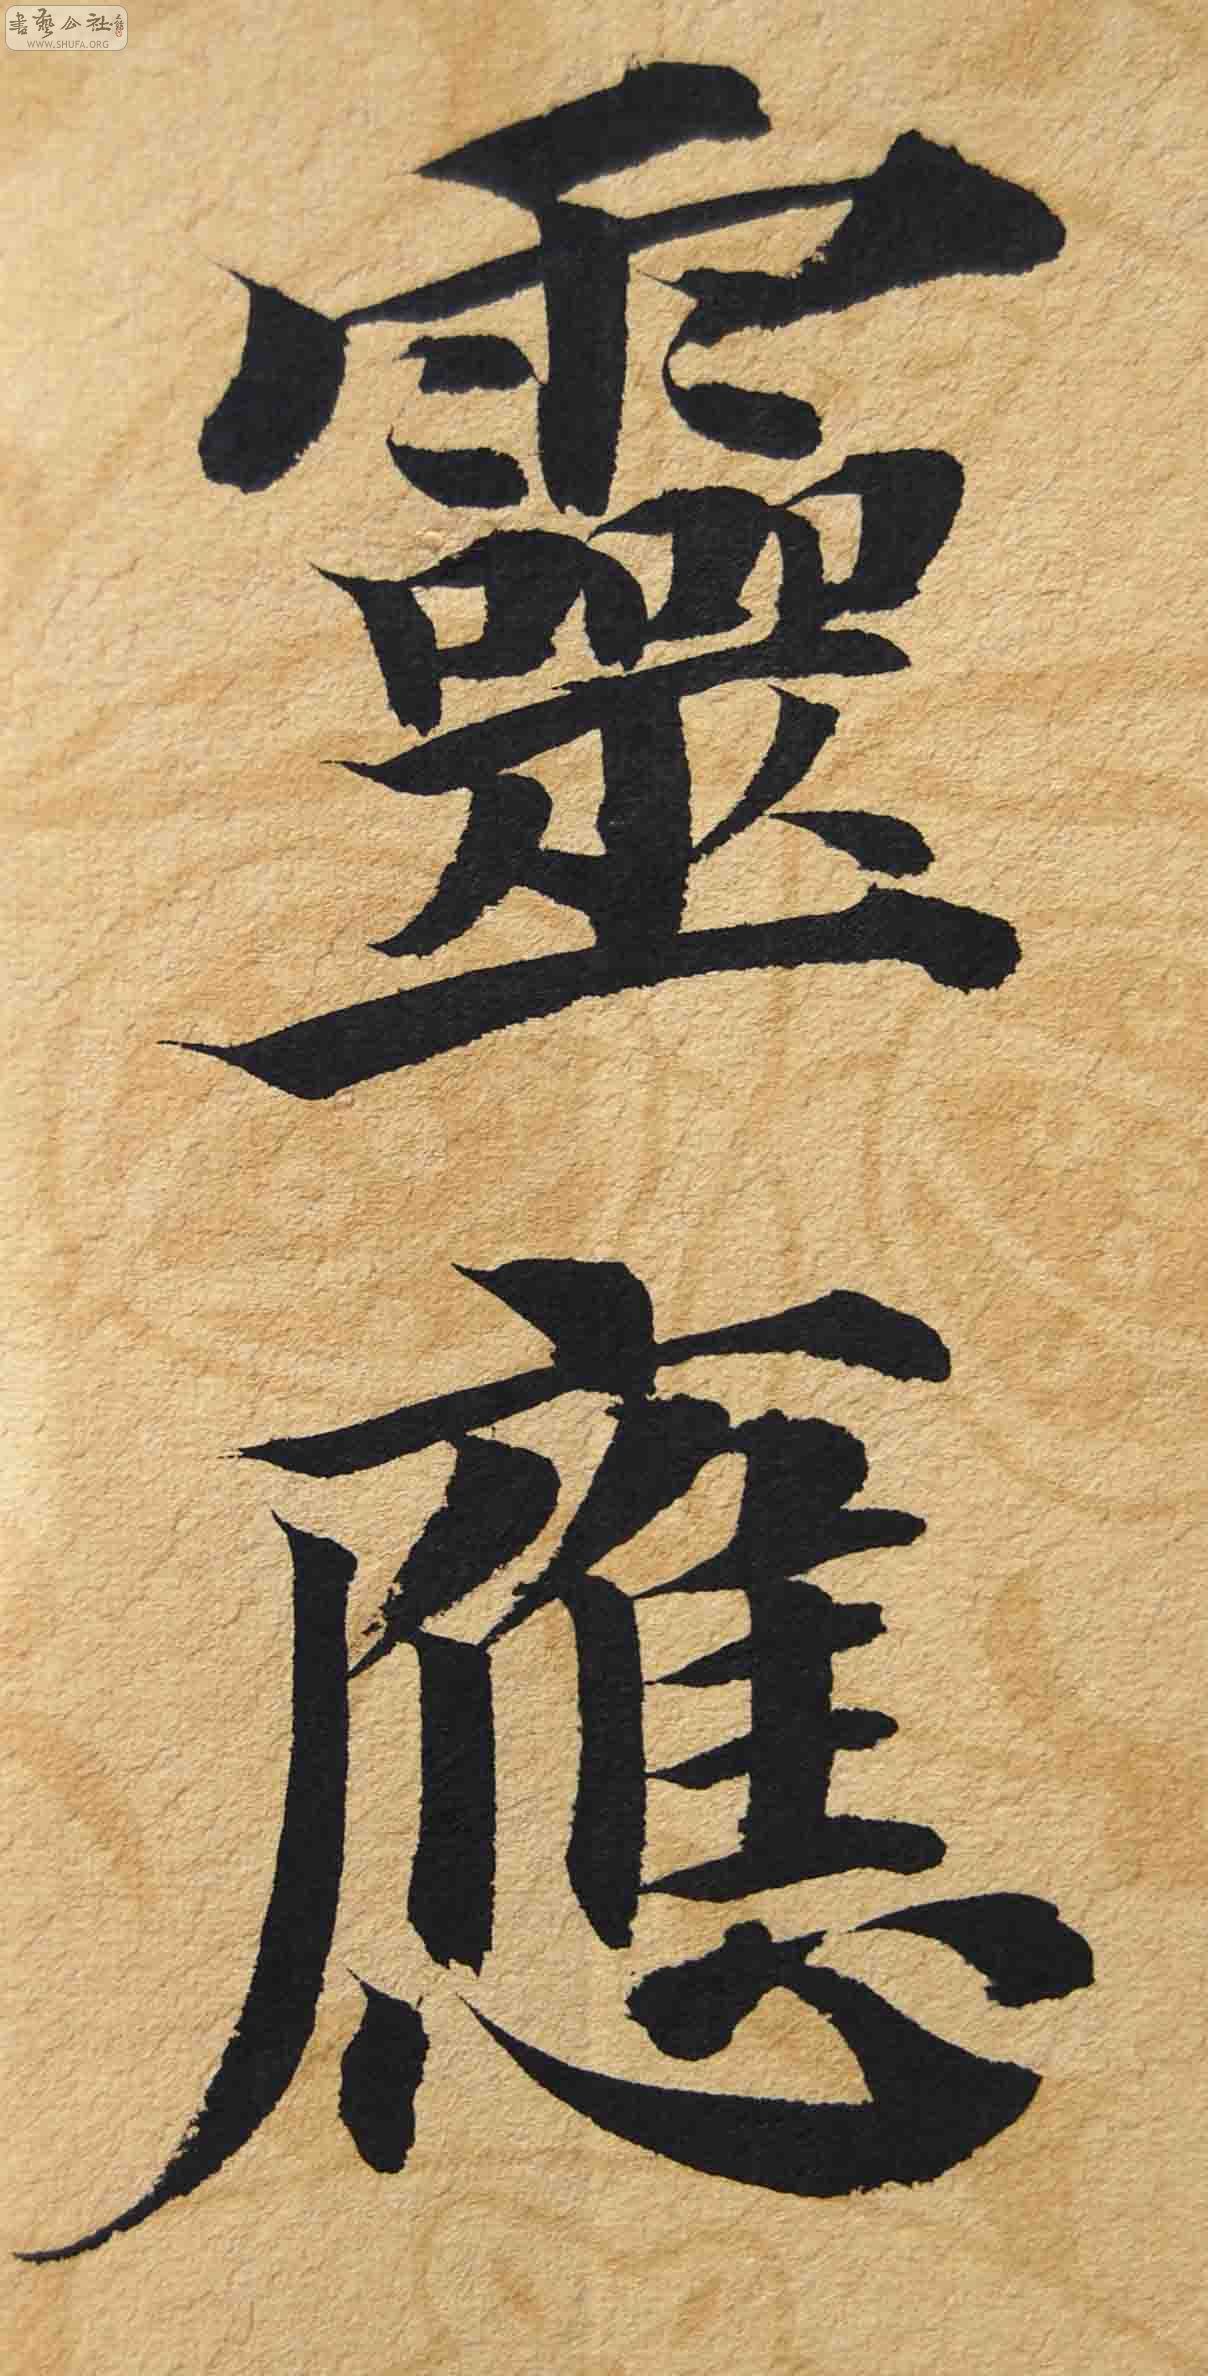 書藝公社
WWW.SHUFA.ORG
靈
應